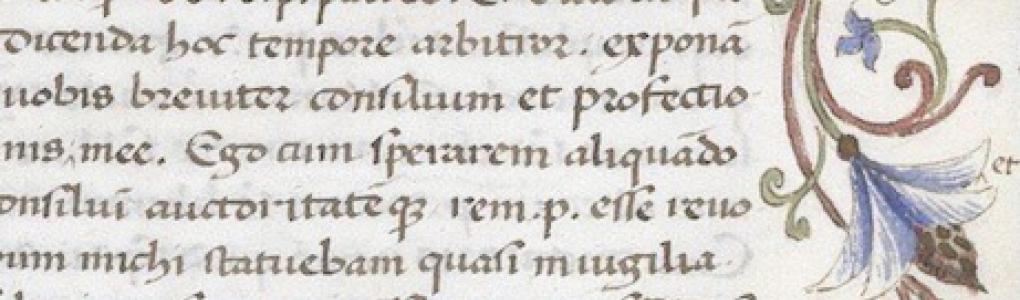 dicenda hoc tempore arbitror. exponā
uobis breuiter consilium et profectio
nis mee. Ego cum sperarem aliquādo
onsiluī auctoritatēqꝫ rem.p. esse reuo
um michi statuebam quasi in uigilia
et